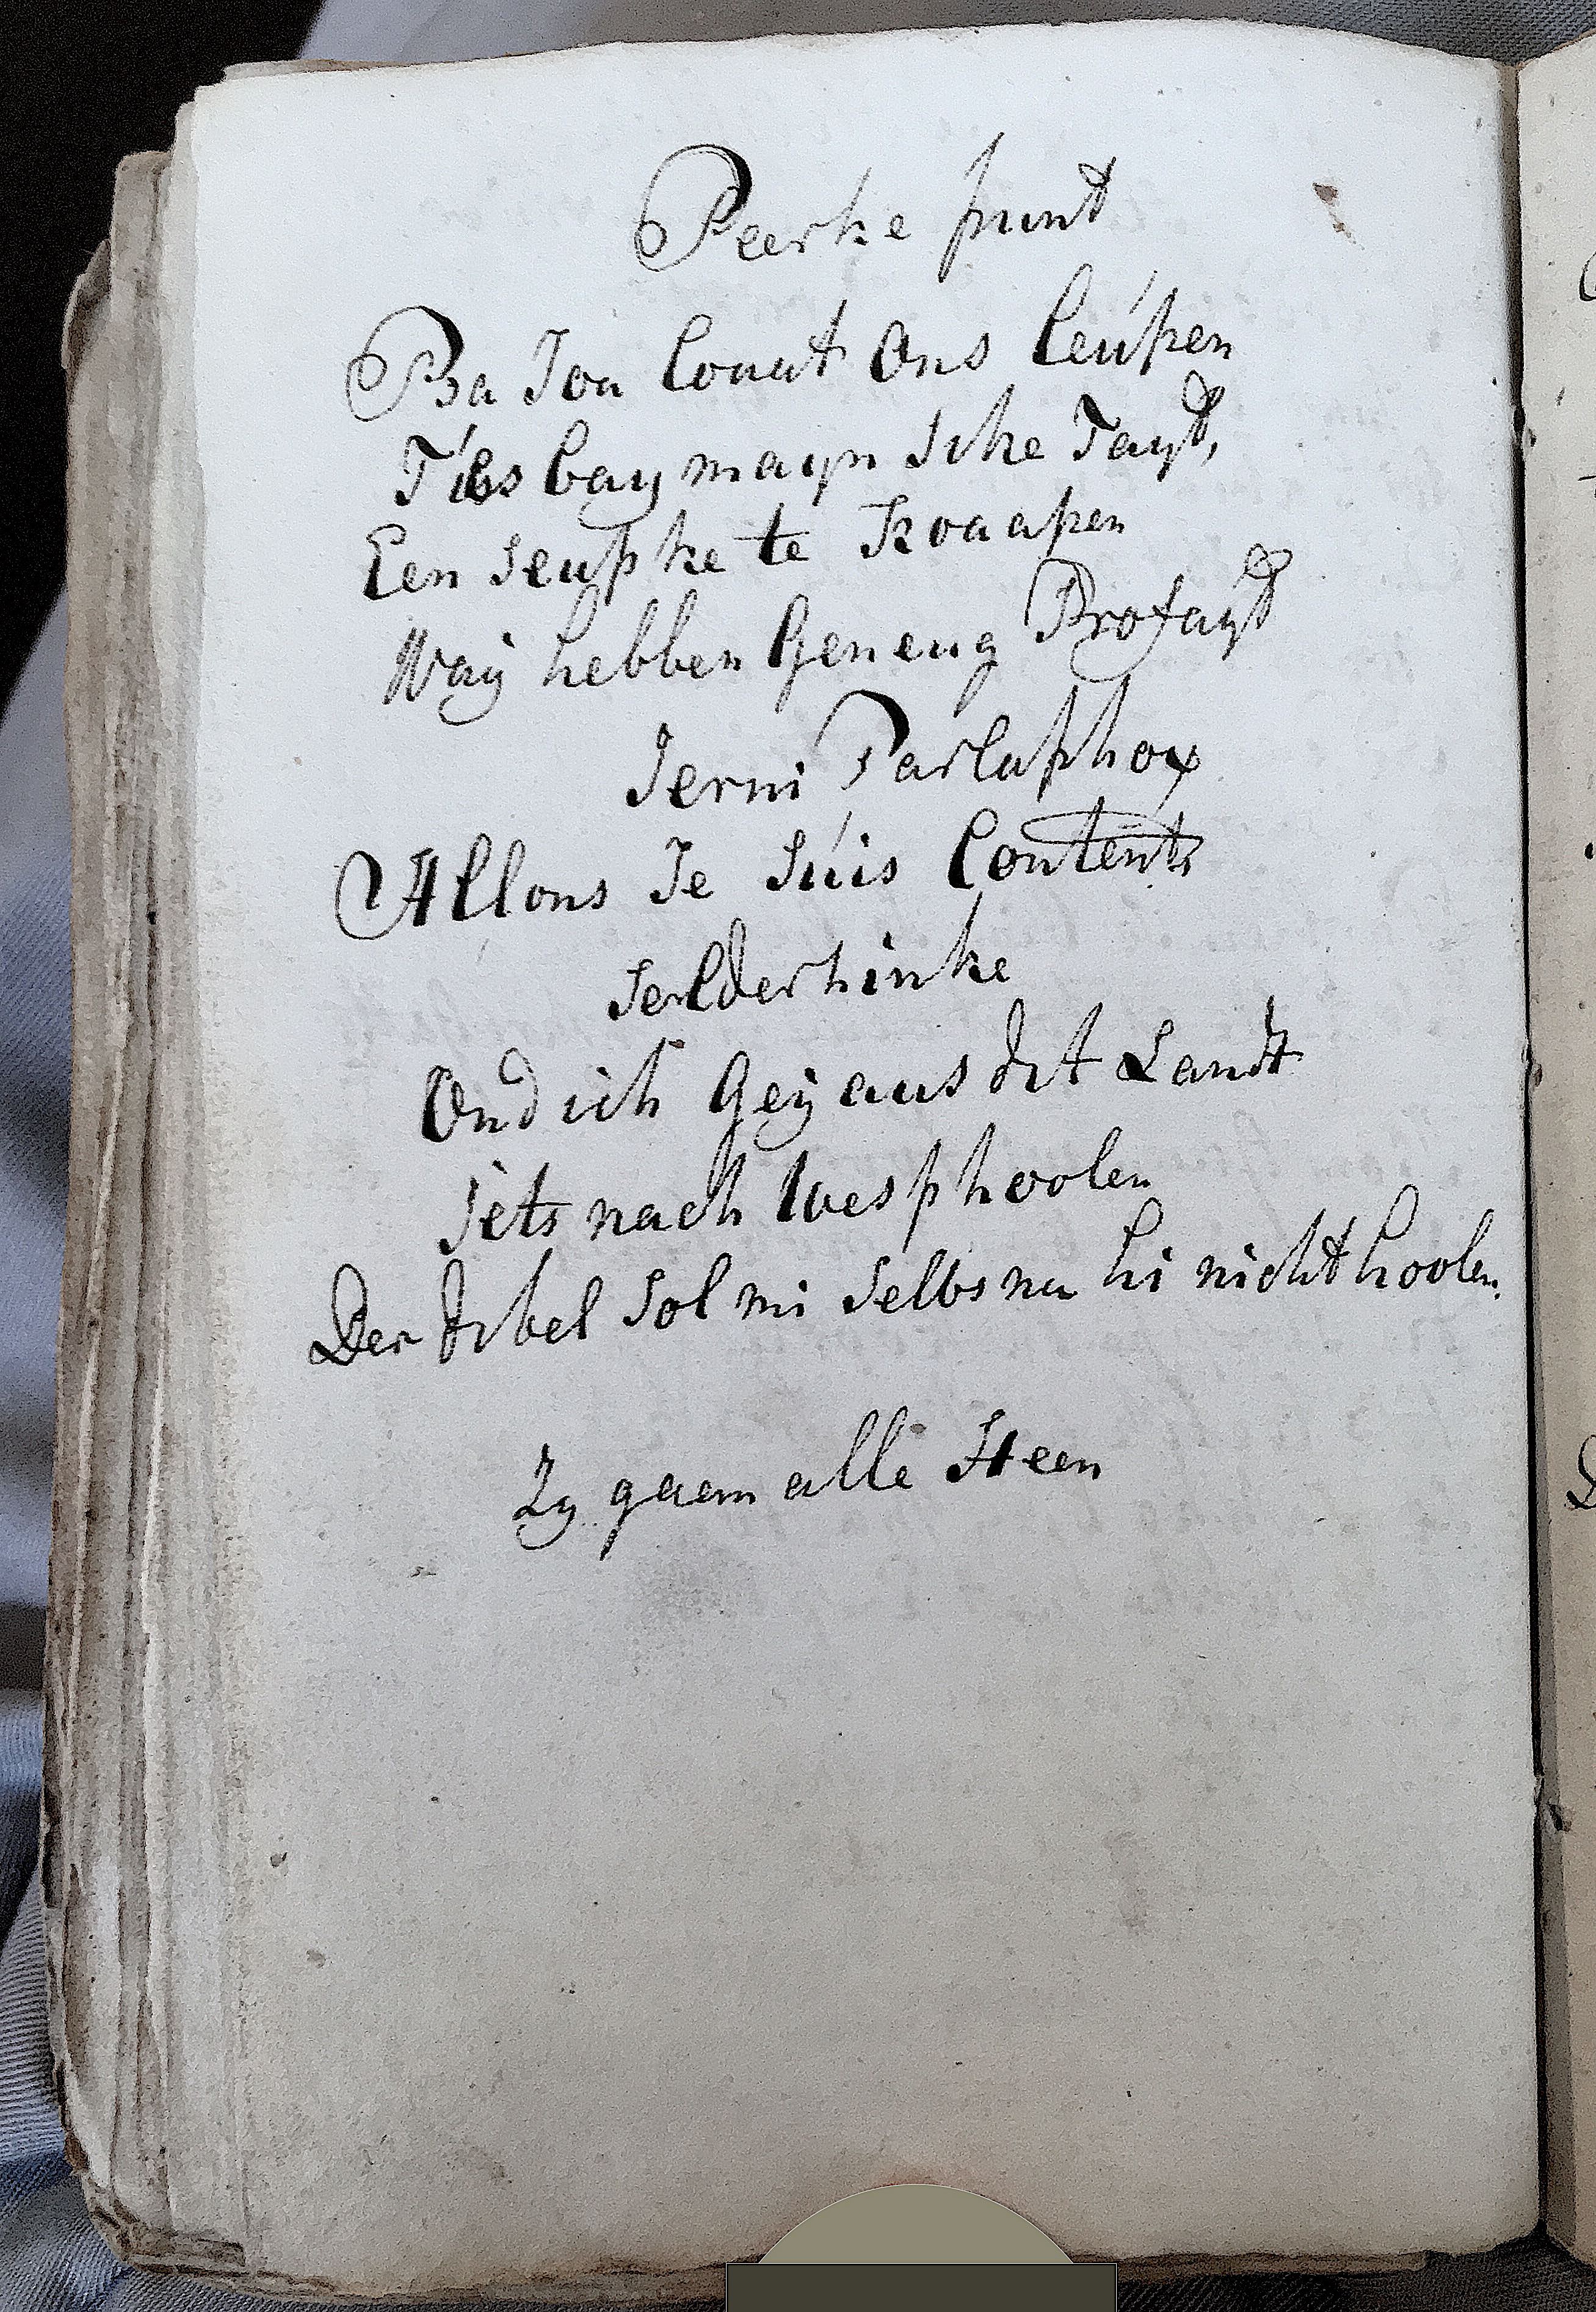 Peerke pint
Ba Jou Couut Ons leúpen
T'is bay mayn sike Tayd,
Een seupke te Koaapen
Way hebben Geneug Profayd
Jerni Parlaphox
Allons Je Súis Contents
selderhinke
Ond ich Geÿ aus dit Landt
Jets nach wesphoolen
Der dibel sol mi selbs nu hi nicht hoolen.
Zy gaem alle Heen